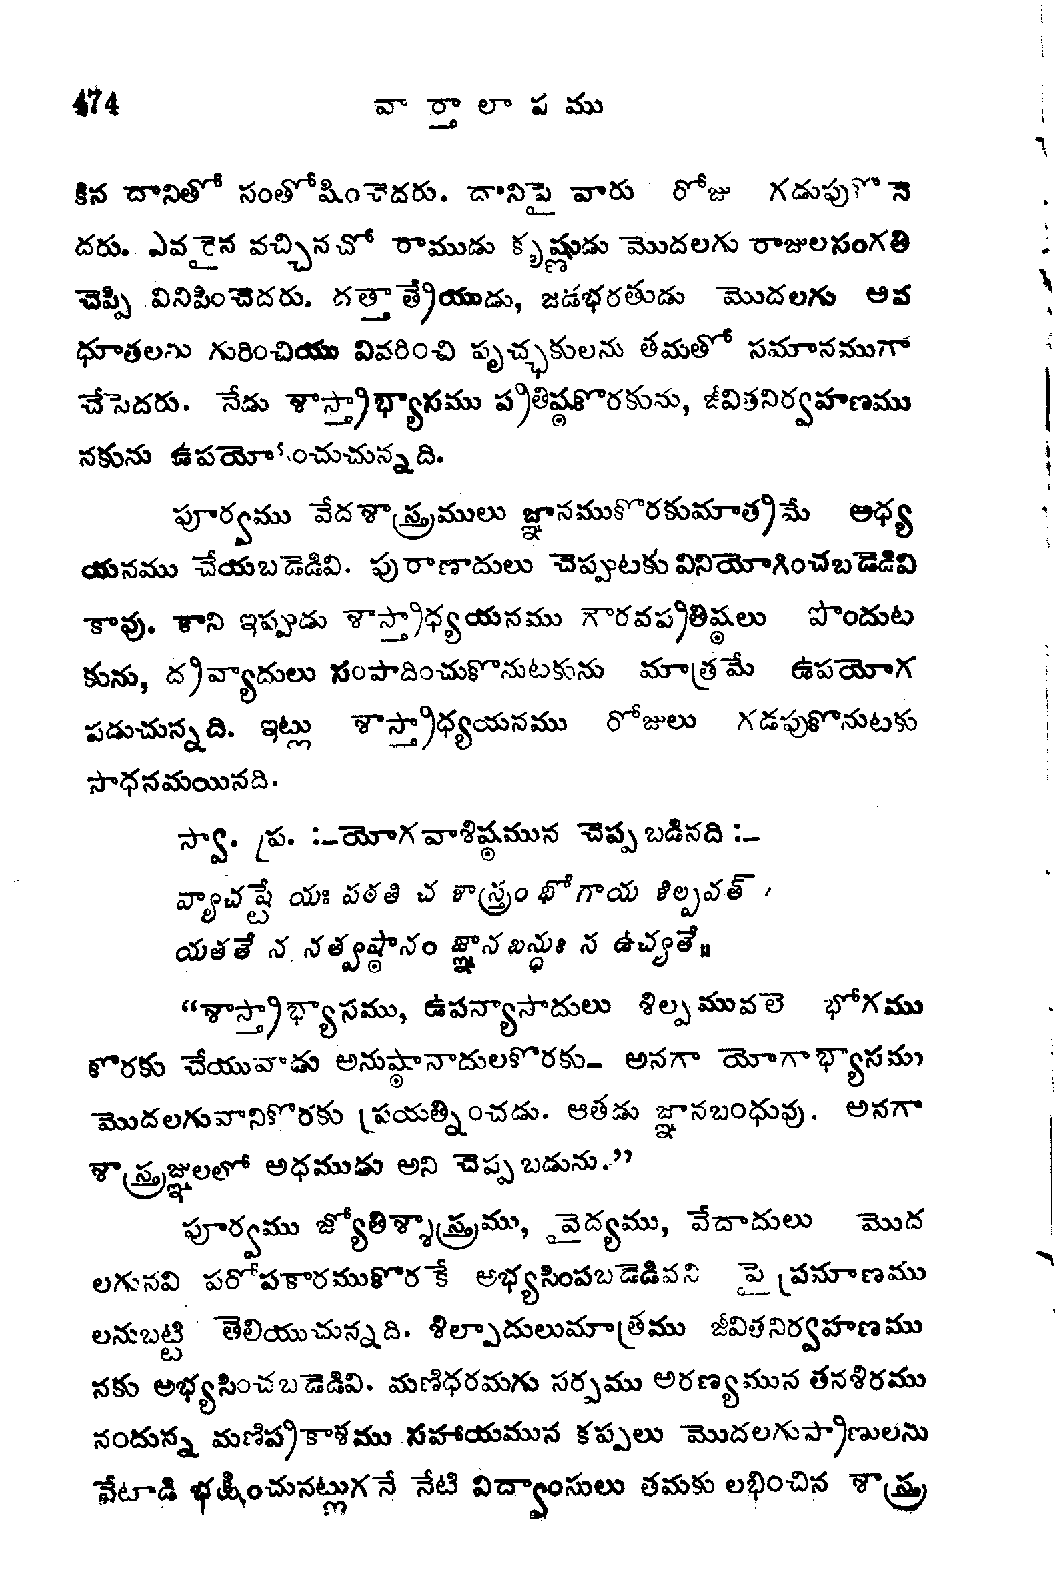 474 వార్తాలాపము
కిన దానితో సంతోషించెదరు. దానిపై వారు రోజు గడుపుగొనె
దరు. ఎవరైన వచ్చినచో రాముడు కృష్ణుడు మొదలగు రాజులసంగతి
చెప్పి వినిపించెదరు. దత్తాత్రేయుడు, జడభరతుడు మొదలగు అవ
ధూతలను గురించియు వివరించి పృచ్ఛకులను తమతో సమానముగా
చేసెదరు. నేడు శాస్త్రాభ్యాసము ప్రతిష్ఠకొరకును, జీవితనిర్వహణము
నకును ఉపయోగించుచున్నది.
పూర్వము వేదశాస్త్రములు జ్ఞానముకొరకుమాత్రమే అధ్య
యనము చేయబడెడివి. పురాణాదులు చెప్పుటకు వినియోగించబడెడివి
కావు. కాని ఇప్పుడు శాస్త్రాధ్యయనము గౌరవప్రతిష్ఠలు పొందుట
కును, ద్రవ్యాదులు సంపాదించుకొనుటకును మాత్రమే ఉపయోగ
పడుచున్నది. ఇట్లు శాస్త్రాధ్యయనము రోజులు గడపుకొనుటకు
సాధనమయినది.
స్వా. ప్ర. :—యోగవాశిష్ఠమున చెప్పబడినది :—
వ్యాచష్టే యః పఠతి చ శాస్త్రం భోగాయ శిల్పవత్ ।
యతతే న నత్వష్ఠానం జ్ఞానబన్ధుః న ఉచ్యతే॥
“శాస్త్రాభ్యాసము, ఉపన్యాసాదులు శిల్పమువలె భోగము
కొరకు చేయువాడు అనుష్ఠానాదులకొరకు— అనగా యోగాభ్యాసము
మొదలగువానికొరకు ప్రయత్నించడు. ఆతడు జ్ఞానబంధువు. అనగా
శాస్త్రజ్ఞులలో అధముడు అని చెప్పబడును.”
పూర్వము జ్యోతిశ్శాస్త్రము, వైద్యము, వేదాదులు మొద
లగునవి పరోపకారముకొరకే అభ్యసింపబడెడివని పై ప్రమాణము
లనుబట్టి తెలియుచున్నది. శిల్పాదులుమాత్రము జీవితనిర్వహణము
నకు అభ్యసించబడెడివి. మణిధరమగు సర్పము అరణ్యమున తనశిరము
నందున్న మణిప్రకాశము సహాయమున కప్పలు మొదలగుప్రాణులను
వేటాడి భక్షించునట్లుగనే నేటి విద్వాంసులు తమకు లభించిన శాస్త్ర